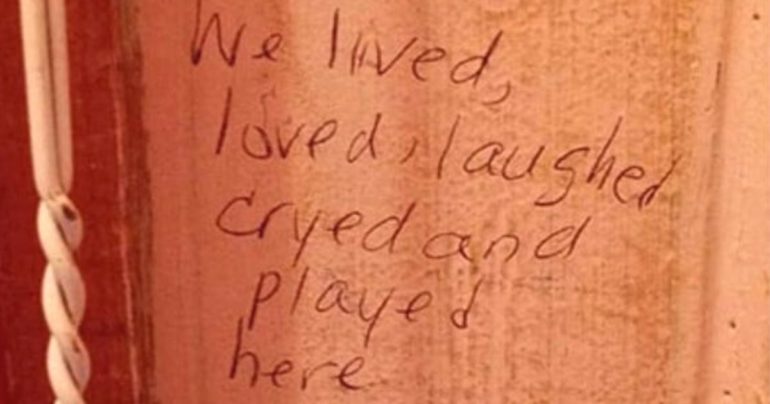 We lived,
loved, laughed
cryed and
played
here